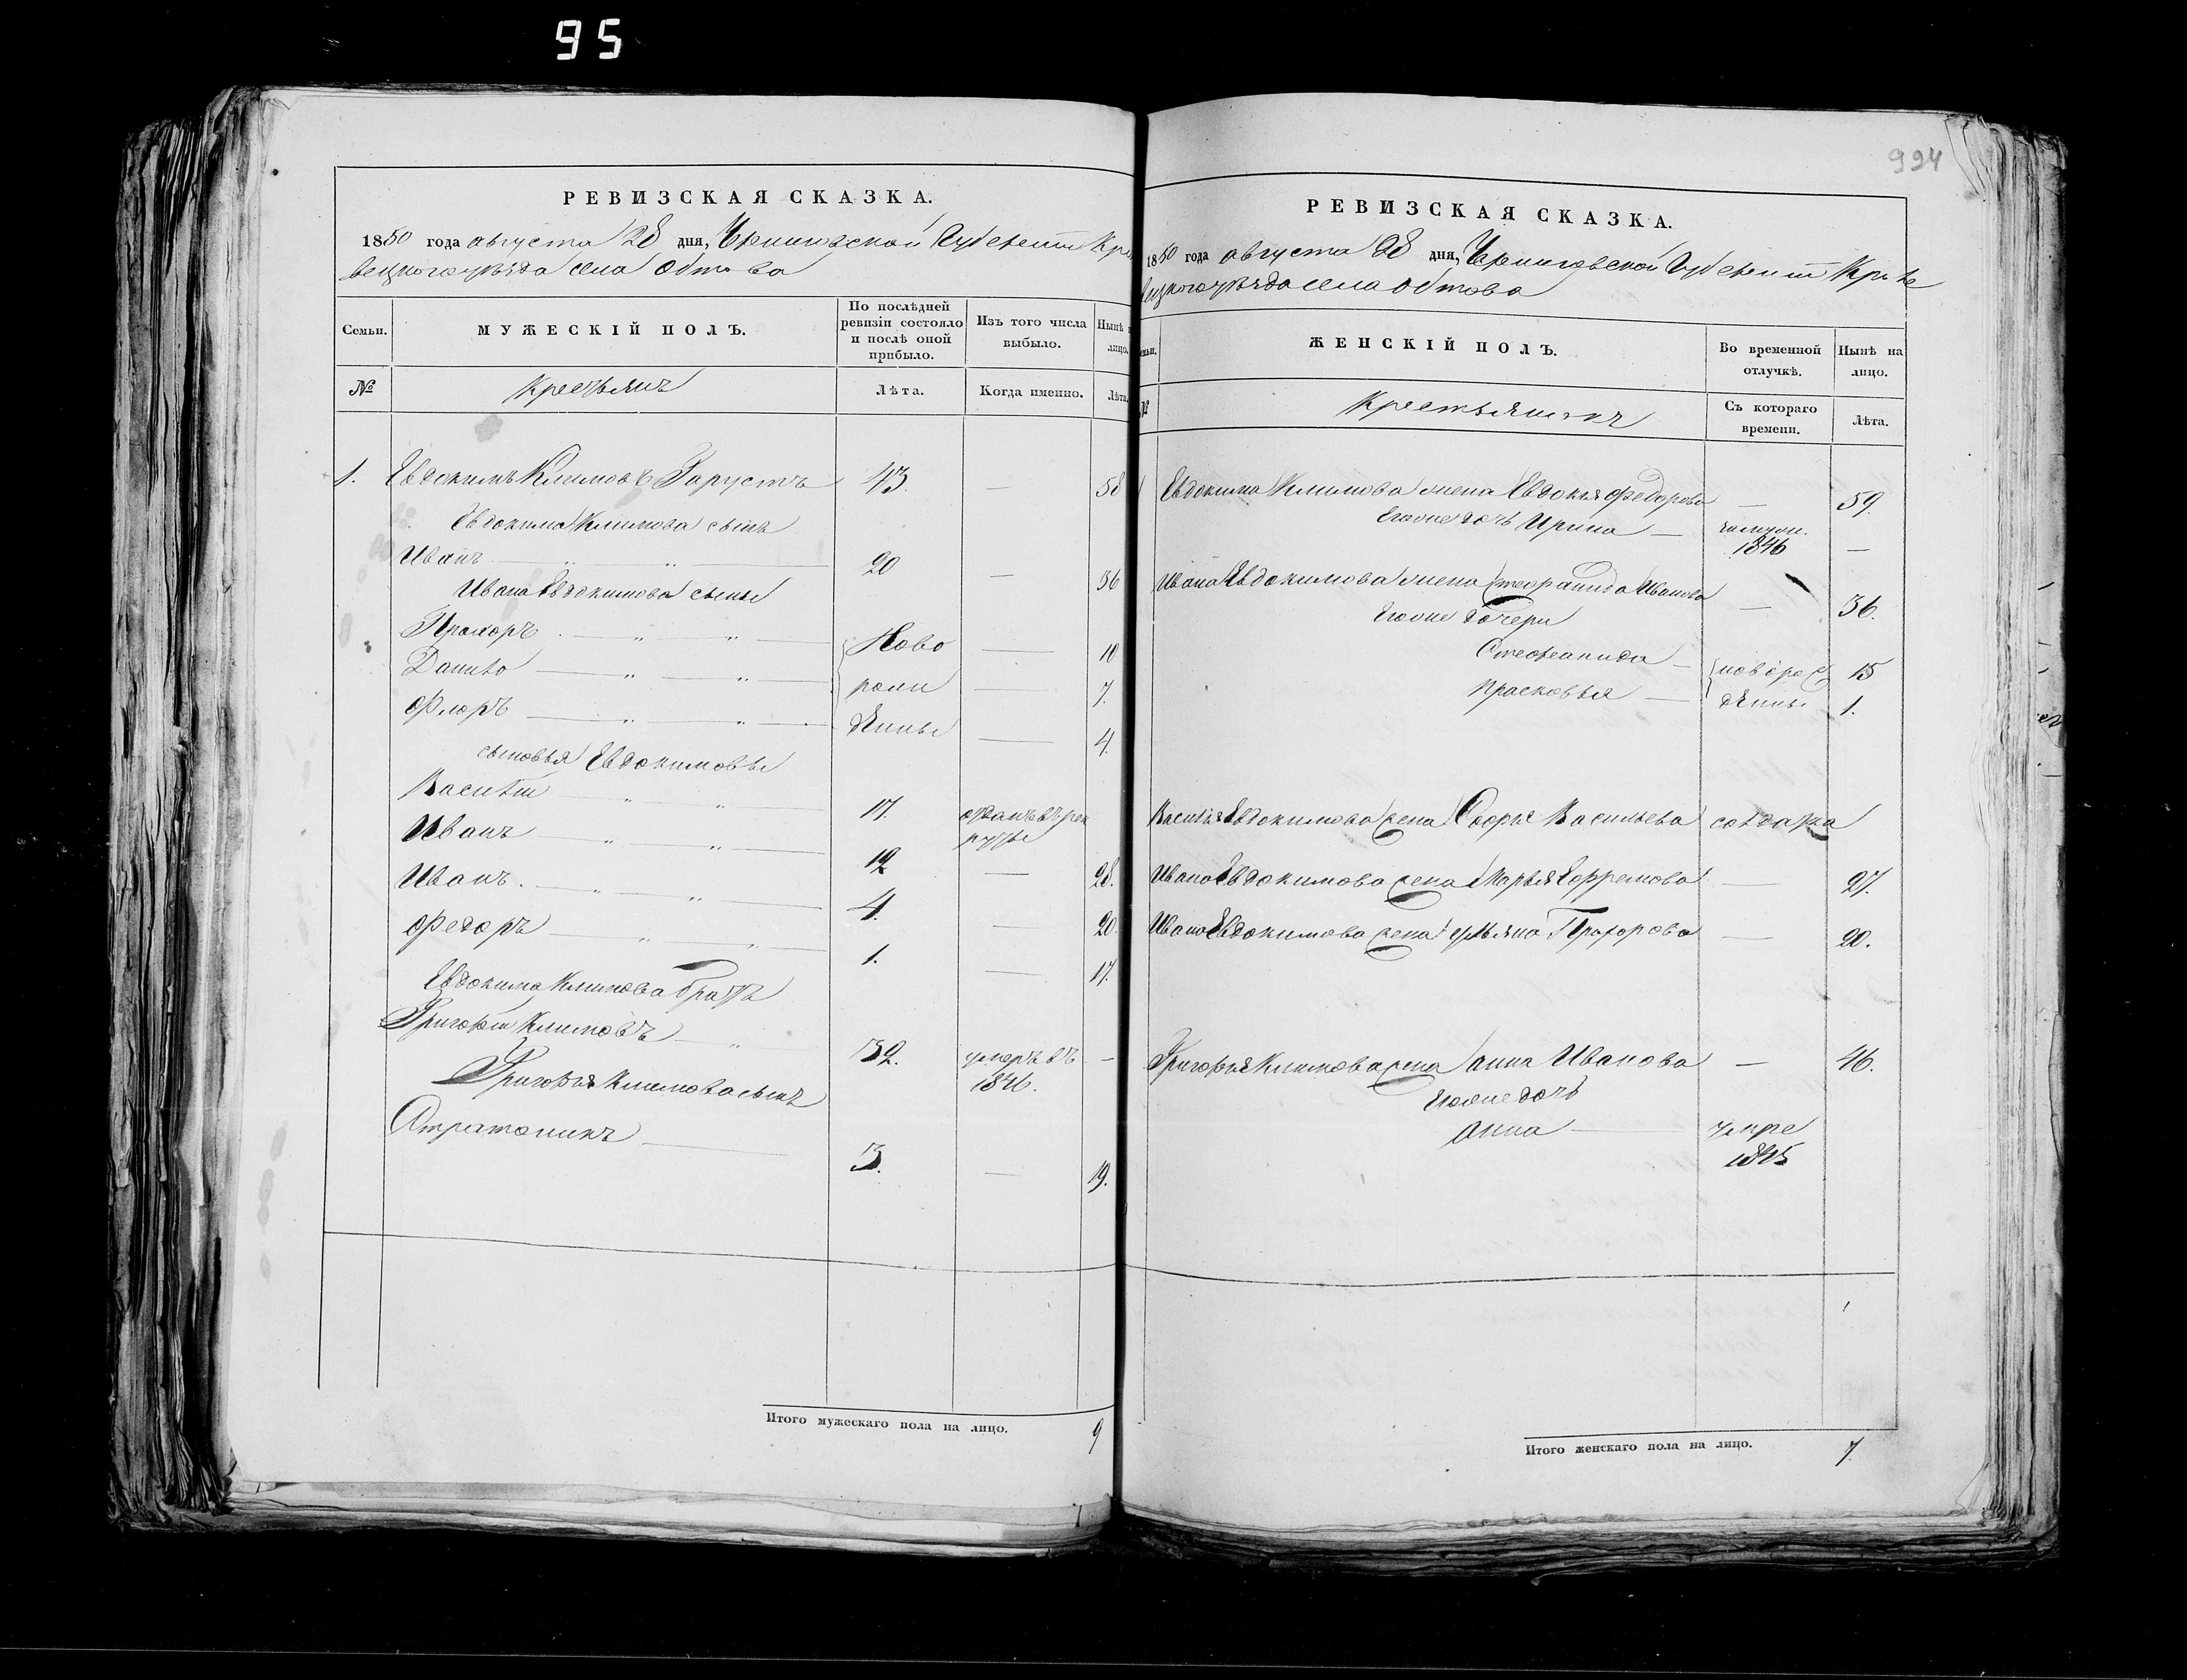 95
994
РЕВИЗСКАЯ СКАЗКА.
1850 года августа 28 дня, Черниговской Губернiи Кро
вецкаго уѣзда села Обтова
Семьи.
МУЖЕСКІЙ ПОЛЪ.
По послѣдней ревизіи состояло и послѣ оной прибыло.
Изъ того числа выбыло.
Нынѣ
лицо.
№
Крестьянъ
Лѣта.
Когда именно.
Лѣта.
1. Евдокимъ Климовъ 43. — 58
Евдокима Климова сынъ
Иванъ 20 — 36
Ивана Евдокимова сыны
Прохоръ Ново — 10
Данило рожн — 7.
Флоръ дѣнны — 4.
сыновья Евдокимовы
Василiй 17. отданъ въ рек
руты
Иванъ 12 — 28.
Иванъ 4. — 20
Федоръ 1. — 17.
Евдокима Климова братъ
Григорiй Климовъ 32. умеръ въ —
1846.
Григорiя Климова сынъ
Стратоникъ 3. — 19.
Итого мужескаго пола на лицо. 9
РЕВИЗСКАЯ СКАЗКА.
1850 года августа 28 дня, Черниговской Губернiи Кроле
вецкаго уѣзда села Обтова
ЖЕНСКІЙ ПОЛЪ.
Во временной отлучкѣ.
Нынѣ на лицо.
№
Крестьянокъ
Съ котораго времени.
Лѣта.
Евдокима Климова жена Евдокiя Федорова — 59.
Егоже дочь Ирина — замуж.
1846 —
Ивана Евдокимова жена Стефанида Иванова — 36.
Егоже дочери
Стефанида — новорож 15
Прасковья — дѣнны 1.
Василiя Евдокимова жена Васильева солдатка
Ивана Евдокимова жена Марья Ефремова — 27.
Ивана Евдокимова жена Ульяна Прохорова — 20.
Григорiя Климова жена Анна Иванова — 46.
Егоже дочь
Анна — умре
1845
Итого женскаго пола на лицо. 7.